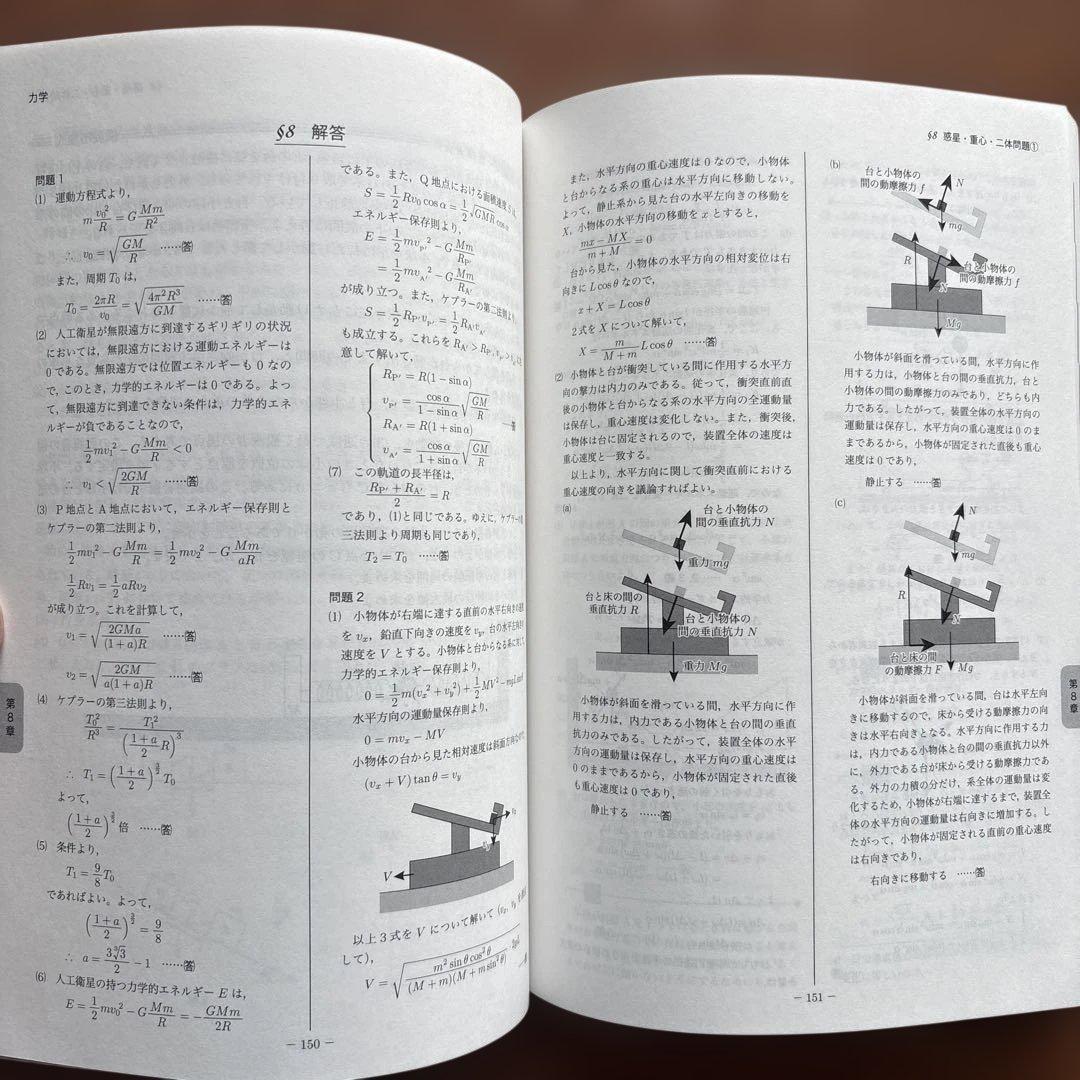 力学
§8 解答
問題1
(1) 運動方程式より,
m v₀²/R = G Mm/R²
∴ v₀ = √(GM/R) ……答
また,周期 T₀ は,
T₀ = 2πR/v₀ = √(4π²R³/GM) ……答
(2) 人工衛星が無限遠方に到達するギリギリの状況
においては,無限遠方における運動エネルギーは
0である。無限遠方では位置エネルギーも0なの
で,このとき,力学的エネルギーは0である。よっ
て,無限遠方に到達できない条件は,力学的エネ
ルギーが負であることなので,
1/2 mv₁² − G Mm/R < 0
∴ v₁ < √(2GM/R) ……答
(3) P地点とA地点において,エネルギー保存則と
ケプラーの第二法則より,
1/2 mv₁² − G Mm/R = 1/2 mv₂² − G Mm/aR
1/2 Rv₁ = 1/2 aRv₂
が成り立つ。これを計算して,
v₁ = √(2GMa/(1+a)R) ……答
v₂ = √(2GM/a(1+a)R) ……答
(4) ケプラーの第三法則より,
T₀²/R³ = T₁²/((1+a)/2 R)³
∴ T₁ = ((1+a)/2)^(3/2) T₀
よって,
((1+a)/2)^(3/2) 倍 ……答
(5) 条件より,
T₁ = 9/8 T₀
であればよい。よって,
((1+a)/2)^(3/2) = 9/8
∴ a = 3∛3/2 − 1 ……答
(6) 人工衛星の持つ力学的エネルギー E は,
E = 1/2 mv₀² − G Mm/R = −GMm/2R
である。また,Q地点における面積速度 S は,
S = 1/2 Rv₀ cos α = 1/2 √GMR cos α
エネルギー保存則より,
E = 1/2 mv_P'² − G Mm/R_P'
= 1/2 mv_A'² − G Mm/R_A'
が成り立つ。また,ケプラーの第二法則より
S = 1/2 R_P' v_P' = 1/2 R_A' v_A'
も成立する。これらを R_A' > R_P',
意して解いて,
R_P' = R(1 − sin α)
v_P' = cos α/(1 − sin α) √(GM/R)
R_A' = R(1 + sin α)
v_A' = cos α/(1 + sin α) √(GM/R)
……答
(7) この軌道の長半径は,
(R_P' + R_A')/2 = R
であり,(1)と同じである。ゆえに,ケプラーの第
三法則より周期も同じであり,
T₂ = T₀ ……答
問題2
(1) 小物体が右端に達する直前の水平右向きの速度
を vₓ,鉛直下向きの速度を v_y,台の水平左向きの
速度を V とする。小物体と台からなる系に対して,
力学的エネルギー保存則より,
0 = 1/2 m(vₓ² + v_y²) + 1/2 MV² − mgL sin θ
水平方向の運動量保存則より,
0 = mvₓ − MV
小物体の台から見た相対速度は斜面方向なので,
(vₓ + V) tan θ = v_y
V
以上3式を V について解いて
して),
V = √(m² sin θ cos² θ/(M + m)(M + m sin² θ) · 2gL)
− 150 −
第8章
§8 惑星・重心・二体問題①
また,水平方向の重心速度は0なので,小物体
と台からなる系の重心は水平方向に移動しない。
よって,静止系から見た台の水平左向きの移動を
X,小物体の水平方向の移動を x とすると,
(mx − MX)/(m + M) = 0
台から見た,小物体の水平方向の相対変位は右
向きに L cos θ なので,
x + X = L cos θ
2式を X について解いて,
X = m/(M + m) L cos θ ……答
(2) 小物体と台が衝突している間に作用する水平方
向の撃力は内力のみである。従って,衝突直前直
後の小物体と台からなる系の水平方向の全運動量
は保存し,重心速度は変化しない。また,衝突後,
小物体は台に固定されるので,装置全体の速度は
重心速度と一致する。
以上より,水平方向に関して衝突直前における
重心速度の向きを議論すればよい。
(a)
台と小物体の
間の垂直抗力 N
重力 mg
台と床の間の
垂直抗力 R
台と小物体の
間の垂直抗力 N
重力 Mg
小物体が斜面を滑っている間,水平方向に作
用する力は,内力である小物体と台の間の垂直
抗力のみである。したがって,装置全体の水平
方向の運動量は保存し,水平方向の重心速度は
0のままであるから,小物体が固定された直後
も重心速度は0であり,
静止する ……答
(b)
台と小物体の
間の動摩擦力 f
N
mg
R
台と小物体の
間の動摩擦力 f
N
Mg
小物体が斜面を滑っている間,水平方向に作
用する力は,小物体と台の間の垂直抗力,台と
小物体の間の動摩擦力のみであり,どちらも内
力である。したがって,装置全体の水平方向の
運動量は保存し,水平方向の重心速度は0のま
まであるから,小物体が固定された直後も重心
速度は0であり,
静止する ……答
(c)
N
mg
R
N
台と床の間の
動摩擦力 F
Mg
小物体が斜面を滑っている間,台は水平左向
きに移動するので,床から受ける動摩擦力の向
きは水平右向きとなる。水平方向に作用する力
は,内力である小物体と台の間の垂直抗力以外
に,外力である台が床から受ける動摩擦力であ
る。外力の力積の分だけ,系全体の運動量は変
化するため,小物体が右端に達するまで,装置全
体の水平方向の運動量は右向きに増加する。し
たがって,小物体が固定される直前の重心速度
は右向きであり,
右向きに移動する ……答
− 151 −
第8章